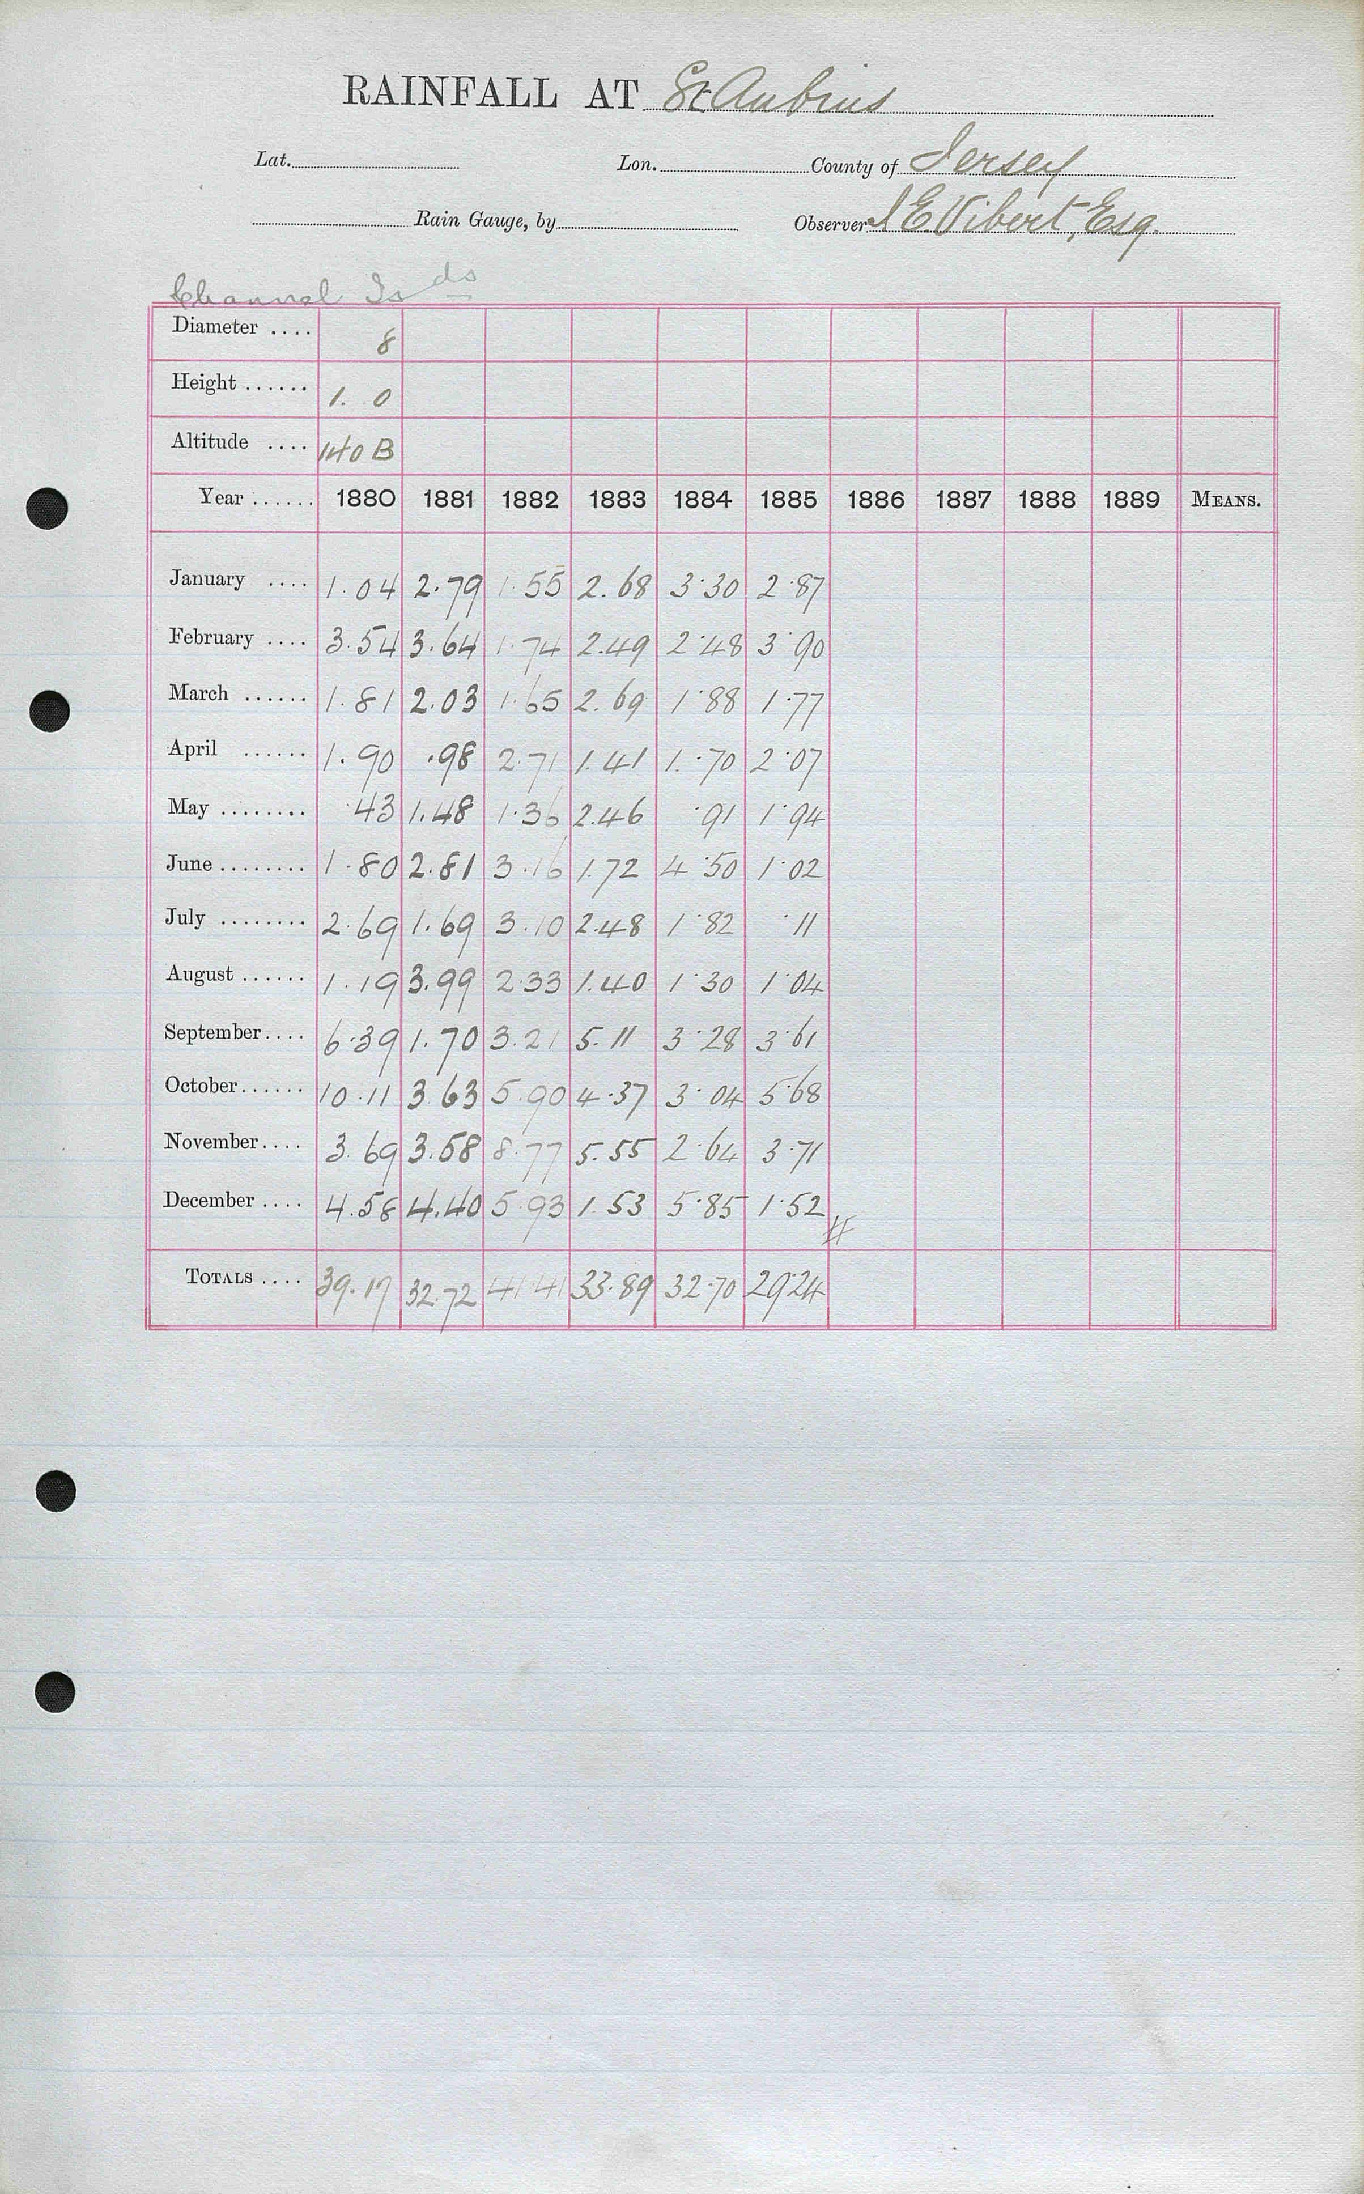 RAINFALL AT St Aubins
Lat. Lon. County of Jersey
Rain Gauge, by Observer J E Vibert, Esq.
Channel Is ds
Diameter .... 8
Height ...... 1. 0
Altitude .... 140 B
Year ...... 1880 1881 1882 1883 1884 1885 1886 1887 1888 1889 MEANS.
January .... 1.04 2.79 1.55 2.68 3.30 2.87
February .... 3.54 3.64 1.74 2.49 2.48 3.90
March ...... 1.81 2.03 1.65 2.69 1.88 1.77
April ...... 1.90 .98 2.71 1.41 1.70 2.07
May ........ .43 1.48 1.36 2.46 .91 1.94
June ........ 1.80 2.81 3.16 1.72 4.50 1.02
July ........ 2.69 1.69 3.10 2.48 1.82 .11
August ...... 1.19 3.99 2.33 1.40 1.30 1.04
September.... 6.39 1.70 3.21 5.11 3.28 3.61
October...... 10.11 3.63 5.90 4.37 3.04 5.68
November.... 3.69 3.58 8.77 5.55 2.64 3.71
December .... 4.58 4.40 5.93 1.53 5.85 1.52
TOTALS .... 39.17 32.72 41.41 33.89 32.70 29.24